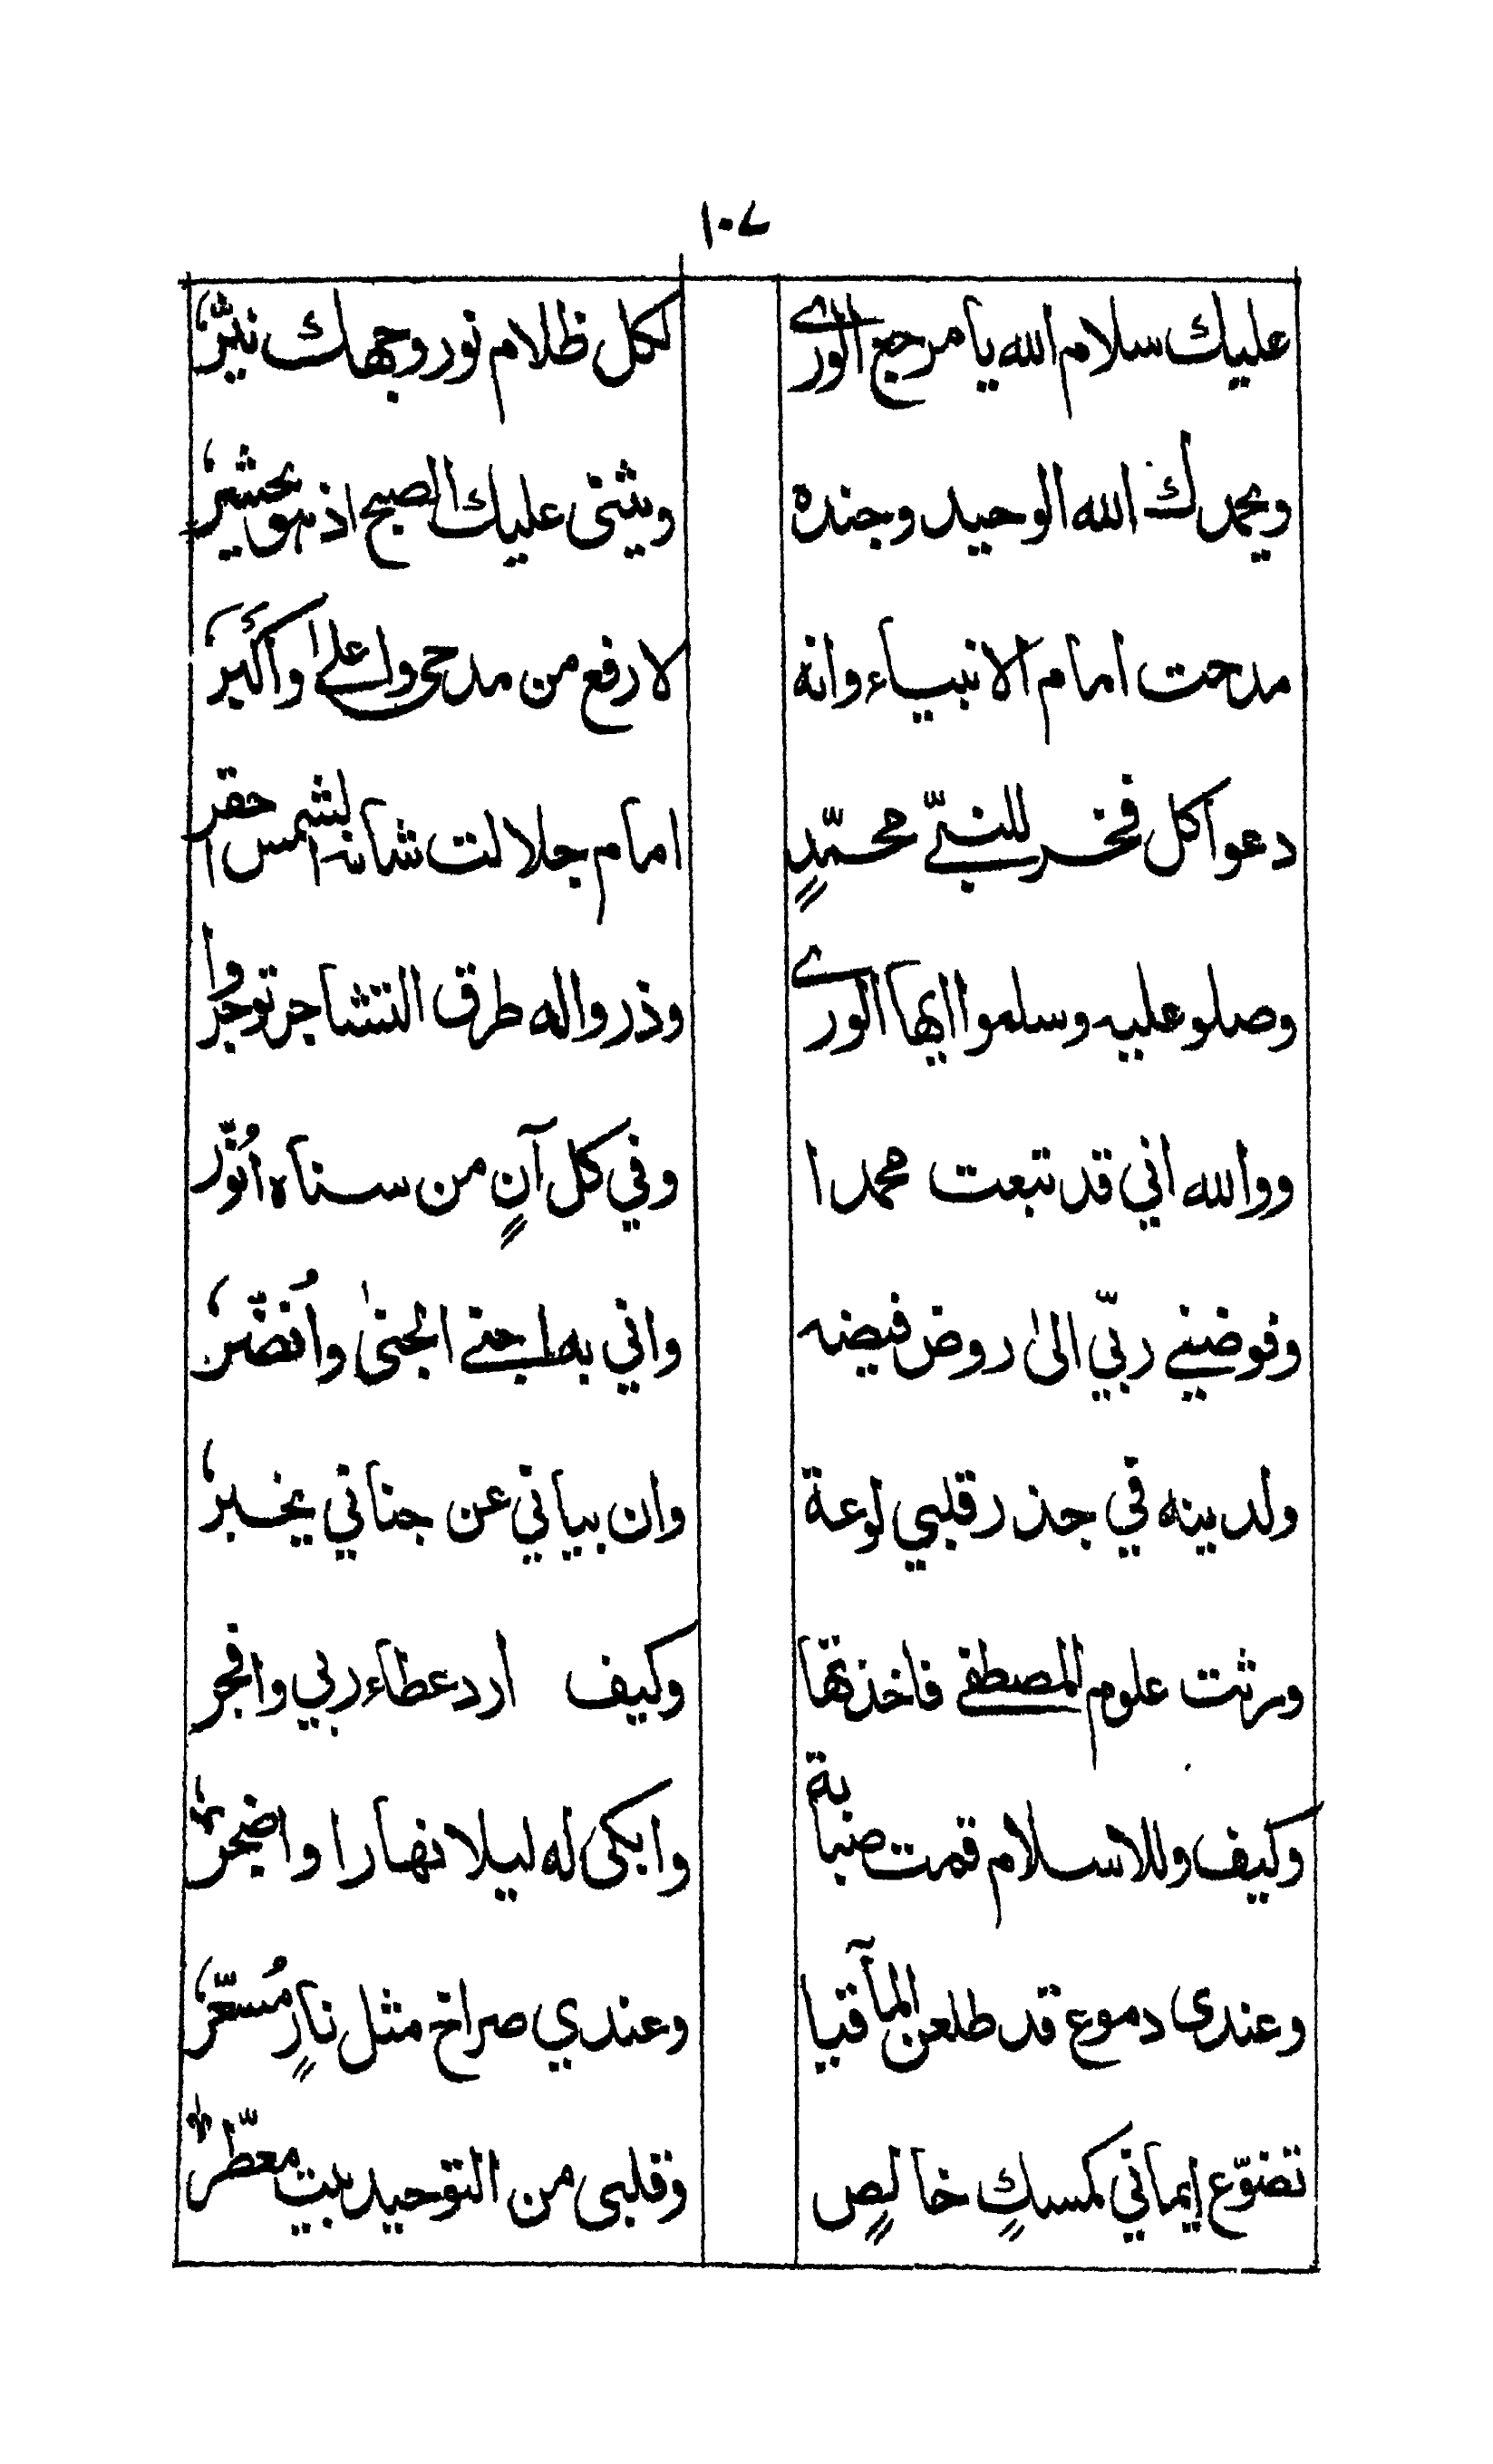 ١٠٧
عليك سلام الله يا مرجع الورے لكل ظلام نور وجهك نيّرٌ
ويحمدك الله الوحيد وجنده ويثنى عليك الصبح اذ هو يحشر
مدحت امام الانبياء وانه لارفع من مدحى واعلےٰ واكبر
دعوا كل فخر للنبےّ محمّدٍ امام جلالت شانه الشمس احقر
وصلو عليه وسلموا ايها الورے وذروا له طرق التشاجر توجروا
ووالله اني قد تبعت محمدا وفي كل آنٍ من سناه اُنوّر
وفوضنے ربّي الىٰ روض فيضه واني به اجنے الجنىٰ واُنضّر
ولدينه في جذر قلبي لوعة وان بياني عن جناني يخبر
ورثت علوم المصطفے فاخذتها وكيف ارد عطاء ربي وافجر
وكيف وللاسلام قمت صبابة وابكى له ليلا نهارا واضجر
وعندى دموع قد طلعن المآقيا وعندي صراخ مثل نارٍ مُسعّر
تضوّع إيماني كمسكٍ خالصٍ وقلبى من التوحيد بيت معطّر